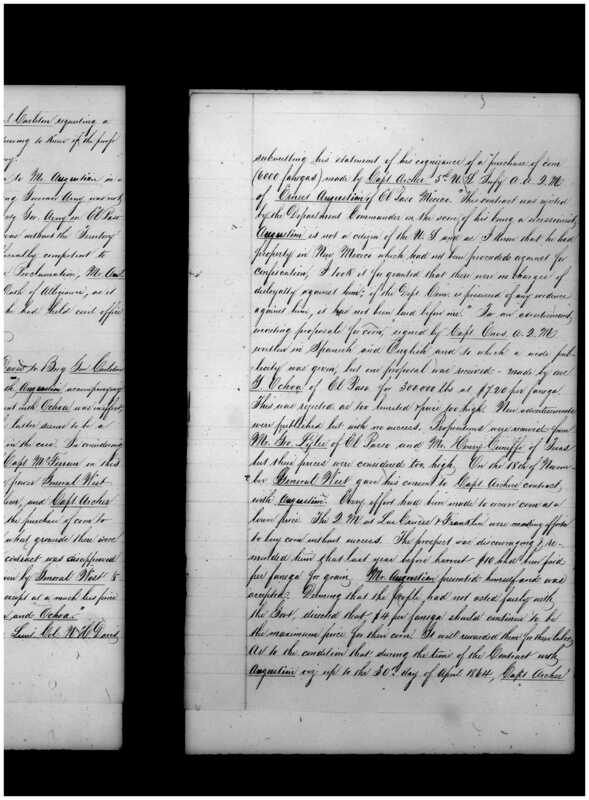 Carleton regarding a
to know of the prop
to Mr. Augustine in a
was not
Genl. Army in El Paso
was without the Territory
competent to
Proclamation, Mr. Aug
of Albuquerque, as it
he had held civil office
to Brig Gen Carleton
Augustine accompanying
with Ochoa was
latter seems to be a
in the case. In considering
Capt McFerran in this
General West
and Capt Archer
the purchase of corn to
what grounds there were
contract was disapproved
by General West &
except at a much less price
and Ochoa."
Lieut Col N H Davis
submitting his statement of his cognizance of a purchase of corn
(6000 fanegas) made by Capt Archer 5th U.S. Infy a. a. Q. M.
of Ernest Augustine of El Paso Mexico. "This contract was vetoed
by the Department Commander on the score of his being a secessionist.
Augustine is not a citizen of the U. S. and as I knew that he had
property in New Mexico which had not been proceeded against for
confiscation, I took it for granted that there were no charges of
disloyalty against him; if the Dept. Com. is possessed of any evidence
against him, it has not been laid before me." To an advertisement,
inviting proposals for corn, signed by Capt a. Q. M
written in Spanish and English and to which a wide pub-
licity was given, but one proposal was received - made by one
Ochoa of El Paso for 300000 lbs at $7.20 per fanega
This was rejected as too limited & price too high. New advertisements
were published but with no success. Propositions were received from
Mr. Lyles of El Paso and Mr. Henry Cuniffe of Texas
but their prices were considered too high. On the 18th of Novem-
ber General West gave his consent to Capt Archers contract
with Augustine. Every effort had been made to secure corn at a
lower price The Q. M. at Las Cruces & Franklin were making efforts
to buy corn without success. The prospect was discouraging & re-
minded him that last year before harvest $10 had been paid
per fanega for grain. Mr. Augustine presented himself and was
accepted. Deeming that the people had not acted fairly with
the Govt, directed that $4 per fanega should continue to be
the maximum price for their corn. It well rewarded them for their labor
As to the condition that during the time of the Contract with
Augustine viz up to the 30th day of April 1864, Capt Archer